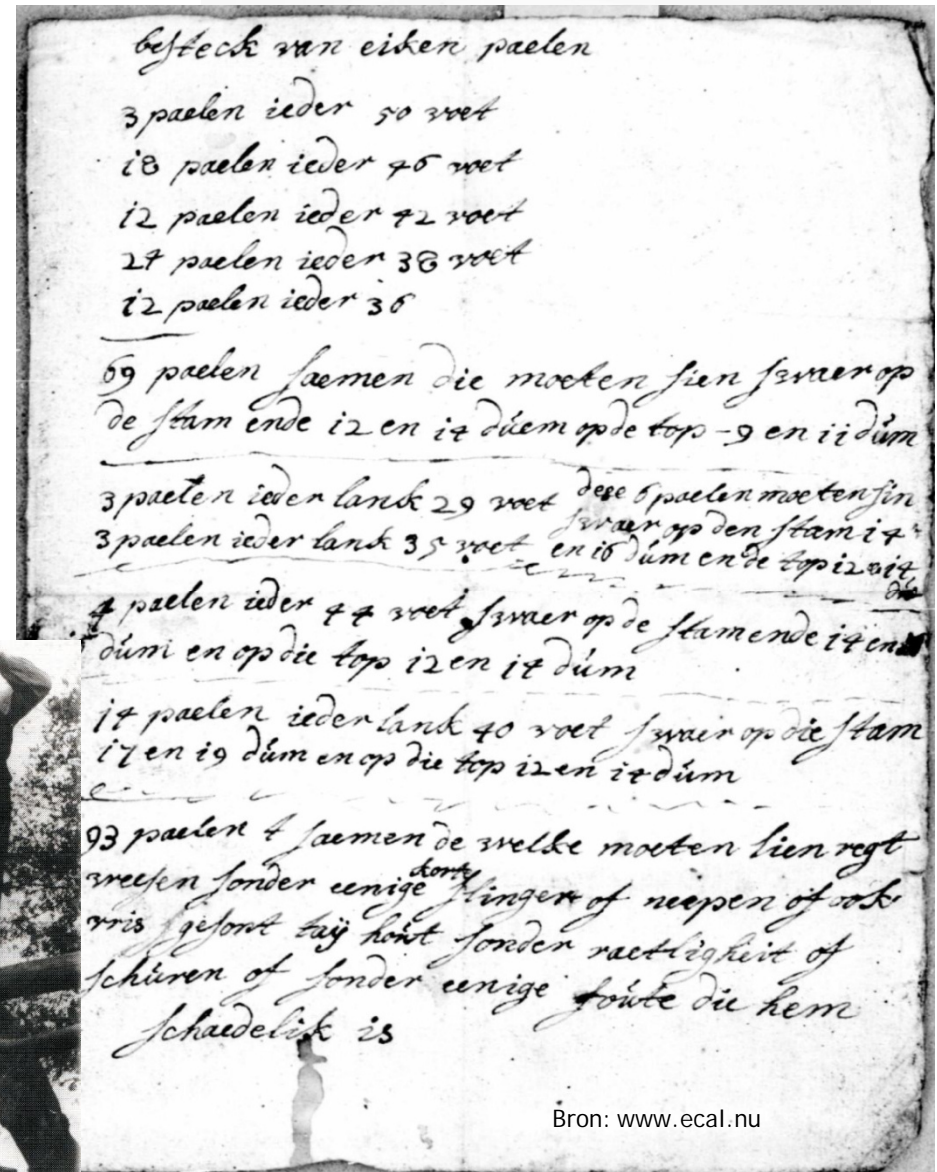 besteck van eiken paelen
3 paelen ieder 50 voet
18 paelen ieder 46 voet
12 paelen ieder 42 voet
24 paelen ieder 38 voet
12 paelen ieder 36
69 paelen saemen die moeten sien swaer op
de stam ende 12 en 14 dúem op de top - 9 en 11 dúm
3 paelen ieder lank 29 voet dese 6 paelen moeten sin
3 paelen ieder lank 35 voet swaer op den stam 14
en 16 dúm en de top 12 14
4 paelen ieder 44 voet swaer op de stam ende 14 en
dúm en op die top 12 en 14 dúm
14 paelen ieder lank 40 voet swaer op die stam
17 en 19 dúm en op die top 12 en 14 dúm
93 paelen t saemen de welke moeten lien regt
weesen sonder eenige korte slinger of neepen of ook
vris gesont taÿ hout sonder raetligheit of
schúren of sonder eenige foúte die hem
schaedelik is
Bron: www.ecal.nu